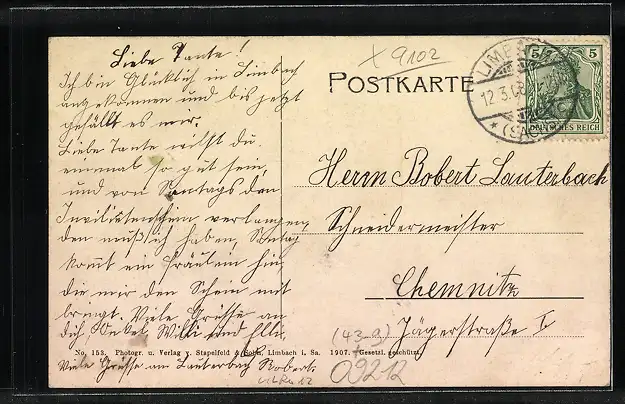 Liebe Tante!
Ich bin Glücklich in Limbach
angekommen und bis jetzt
gefällt es mir.
Liebe Tante willst du
einmal so gut sein,
und von Sontags den
verlangen,
den muß ich haben, Sontag
komt ein Fräulein hin,
die mir den Schein mit
bringt. Viele Grüsse an
dich, Onkel Willi und Elli.
Viele Grüsse an Lauterbach Robert.
x 9102
POSTKARTE
5 5
DEUTSCHES REICH
LIMB
12.3.08
* (SACHS
Herrn Robert Lauterbach
Schneidermeister
Chemnitz
Jägerstraße
(43-g)
09212
No. 153. Photogr. u. Verlag v. Stapelfeld & Sohn, Limbach i. Sa. 1907. Gesetzl. geschützt.